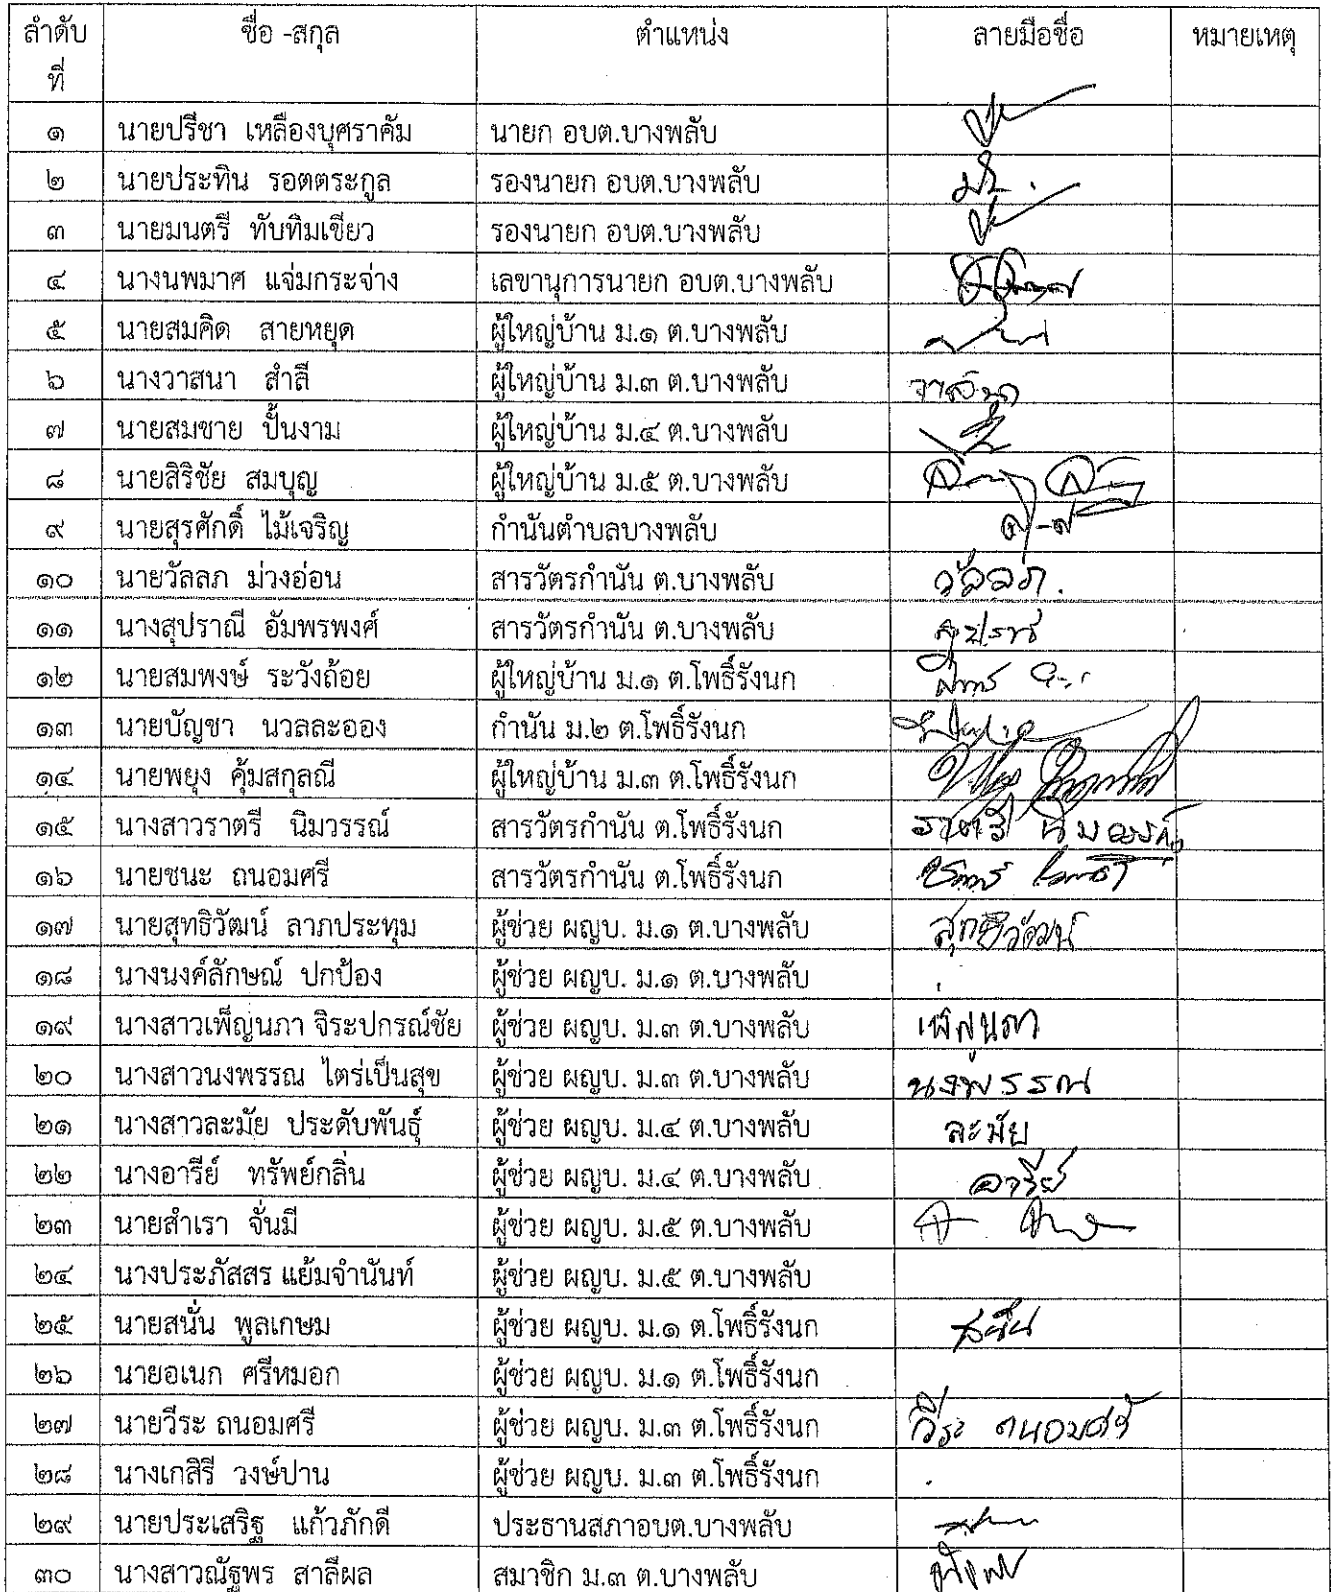 ลำดับที่ ชื่อ -สกุล ตำแหน่ง ลายมือชื่อ หมายเหตุ
๑ นายปรีชา เหลืองบุศราคัม นายก อบต.บางพลับ
๒ นายประทิน รอตตระกูล รองนายก อบต.บางพลับ
๓ นายมนตรี ทับทิมเขียว รองนายก อบต.บางพลับ
๔ นางนพมาศ แจ่มกระจ่าง เลขานุการนายก อบต.บางพลับ
๕ นายสมคิด สายหยุด ผู้ใหญ่บ้าน ม.๑ ต.บางพลับ
๖ นางวาสนา สำลี ผู้ใหญ่บ้าน ม.๓ ต.บางพลับ วาสนา
๗ นายสมชาย ปั้นงาม ผู้ใหญ่บ้าน ม.๔ ต.บางพลับ
๘ นายสิริชัย สมบุญ ผู้ใหญ่บ้าน ม.๕ ต.บางพลับ
๙ นายสุรศักดิ์ ไม้เจริญ กำนันตำบลบางพลับ
๑๐ นายวัลลภ ม่วงอ่อน สารวัตรกำนัน ต.บางพลับ วัลลภ.
๑๑ นางสุปราณี อัมพรพงศ์ สารวัตรกำนัน ต.บางพลับ
๑๒ นายสมพงษ์ ระวังถ้อย ผู้ใหญ่บ้าน ม.๑ ต.โพธิ์รังนก
๑๓ นายบัญชา นวลละออง กำนัน ม.๒ ต.โพธิ์รังนก
๑๔ นายพยุง คุ้มสกุลณี ผู้ใหญ่บ้าน ม.๓ ต.โพธิ์รังนก
๑๕ นางสาวราตรี นิมวรรณ์ สารวัตรกำนัน ต.โพธิ์รังนก ราตรี นิมวรรณ์
๑๖ นายชนะ ถนอมศรี สารวัตรกำนัน ต.โพธิ์รังนก
๑๗ นายสุทธิวัฒน์ ลาภประทุม ผู้ช่วย ผญบ. ม.๑ ต.บางพลับ สุทธิวัฒน์
๑๘ นางนงค์ลักษณ์ ปกป้อง ผู้ช่วย ผญบ. ม.๑ ต.บางพลับ
๑๙ นางสาวเพ็ญนภา จิระปกรณ์ชัย ผู้ช่วย ผญบ. ม.๓ ต.บางพลับ เพ็ญนภา
๒๐ นางสาวนงพรรณ ไตร่เป็นสุข ผู้ช่วย ผญบ. ม.๓ ต.บางพลับ นงพรรณ
๒๑ นางสาวละมัย ประดับพันธุ์ ผู้ช่วย ผญบ. ม.๔ ต.บางพลับ ละมัย
๒๒ นางอารีย์ ทรัพย์กลิ่น ผู้ช่วย ผญบ. ม.๔ ต.บางพลับ อารีย์
๒๓ นายสำเรา จั่นมี ผู้ช่วย ผญบ. ม.๕ ต.บางพลับ
๒๔ นางประภัสสร แย้มจำนันท์ ผู้ช่วย ผญบ. ม.๕ ต.บางพลับ
๒๕ นายสนั่น พูลเกษม ผู้ช่วย ผญบ. ม.๑ ต.โพธิ์รังนก สนั่น
๒๖ นายอเนก ศรีหมอก ผู้ช่วย ผญบ. ม.๑ ต.โพธิ์รังนก
๒๗ นายวีระ ถนอมศรี ผู้ช่วย ผญบ. ม.๓ ต.โพธิ์รังนก วีระ ถนอมศรี
๒๘ นางเกสิรี วงษ์ปาน ผู้ช่วย ผญบ. ม.๓ ต.โพธิ์รังนก
๒๙ นายประเสริฐ แก้วภักดี ประธานสภาอบต.บางพลับ
๓๐ นางสาวณัฐพร สาลีผล สมาชิก ม.๓ ต.บางพลับ